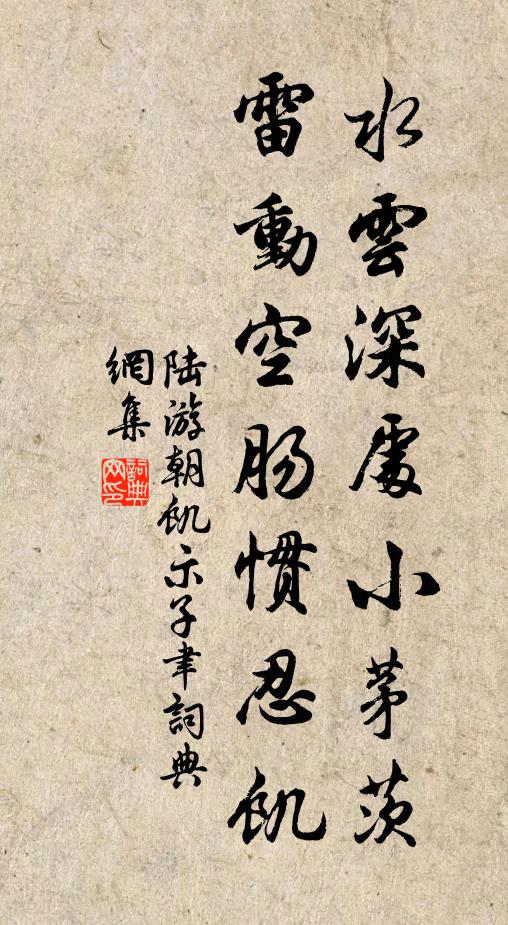 水雲深處小茅茨
雷動空腸慣忍飢
陆游朝飢示子聿詞典
網集
詞典
网印